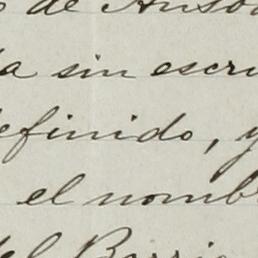 de Anso
a sin escri
efinido, y
el nombr
del Barrio